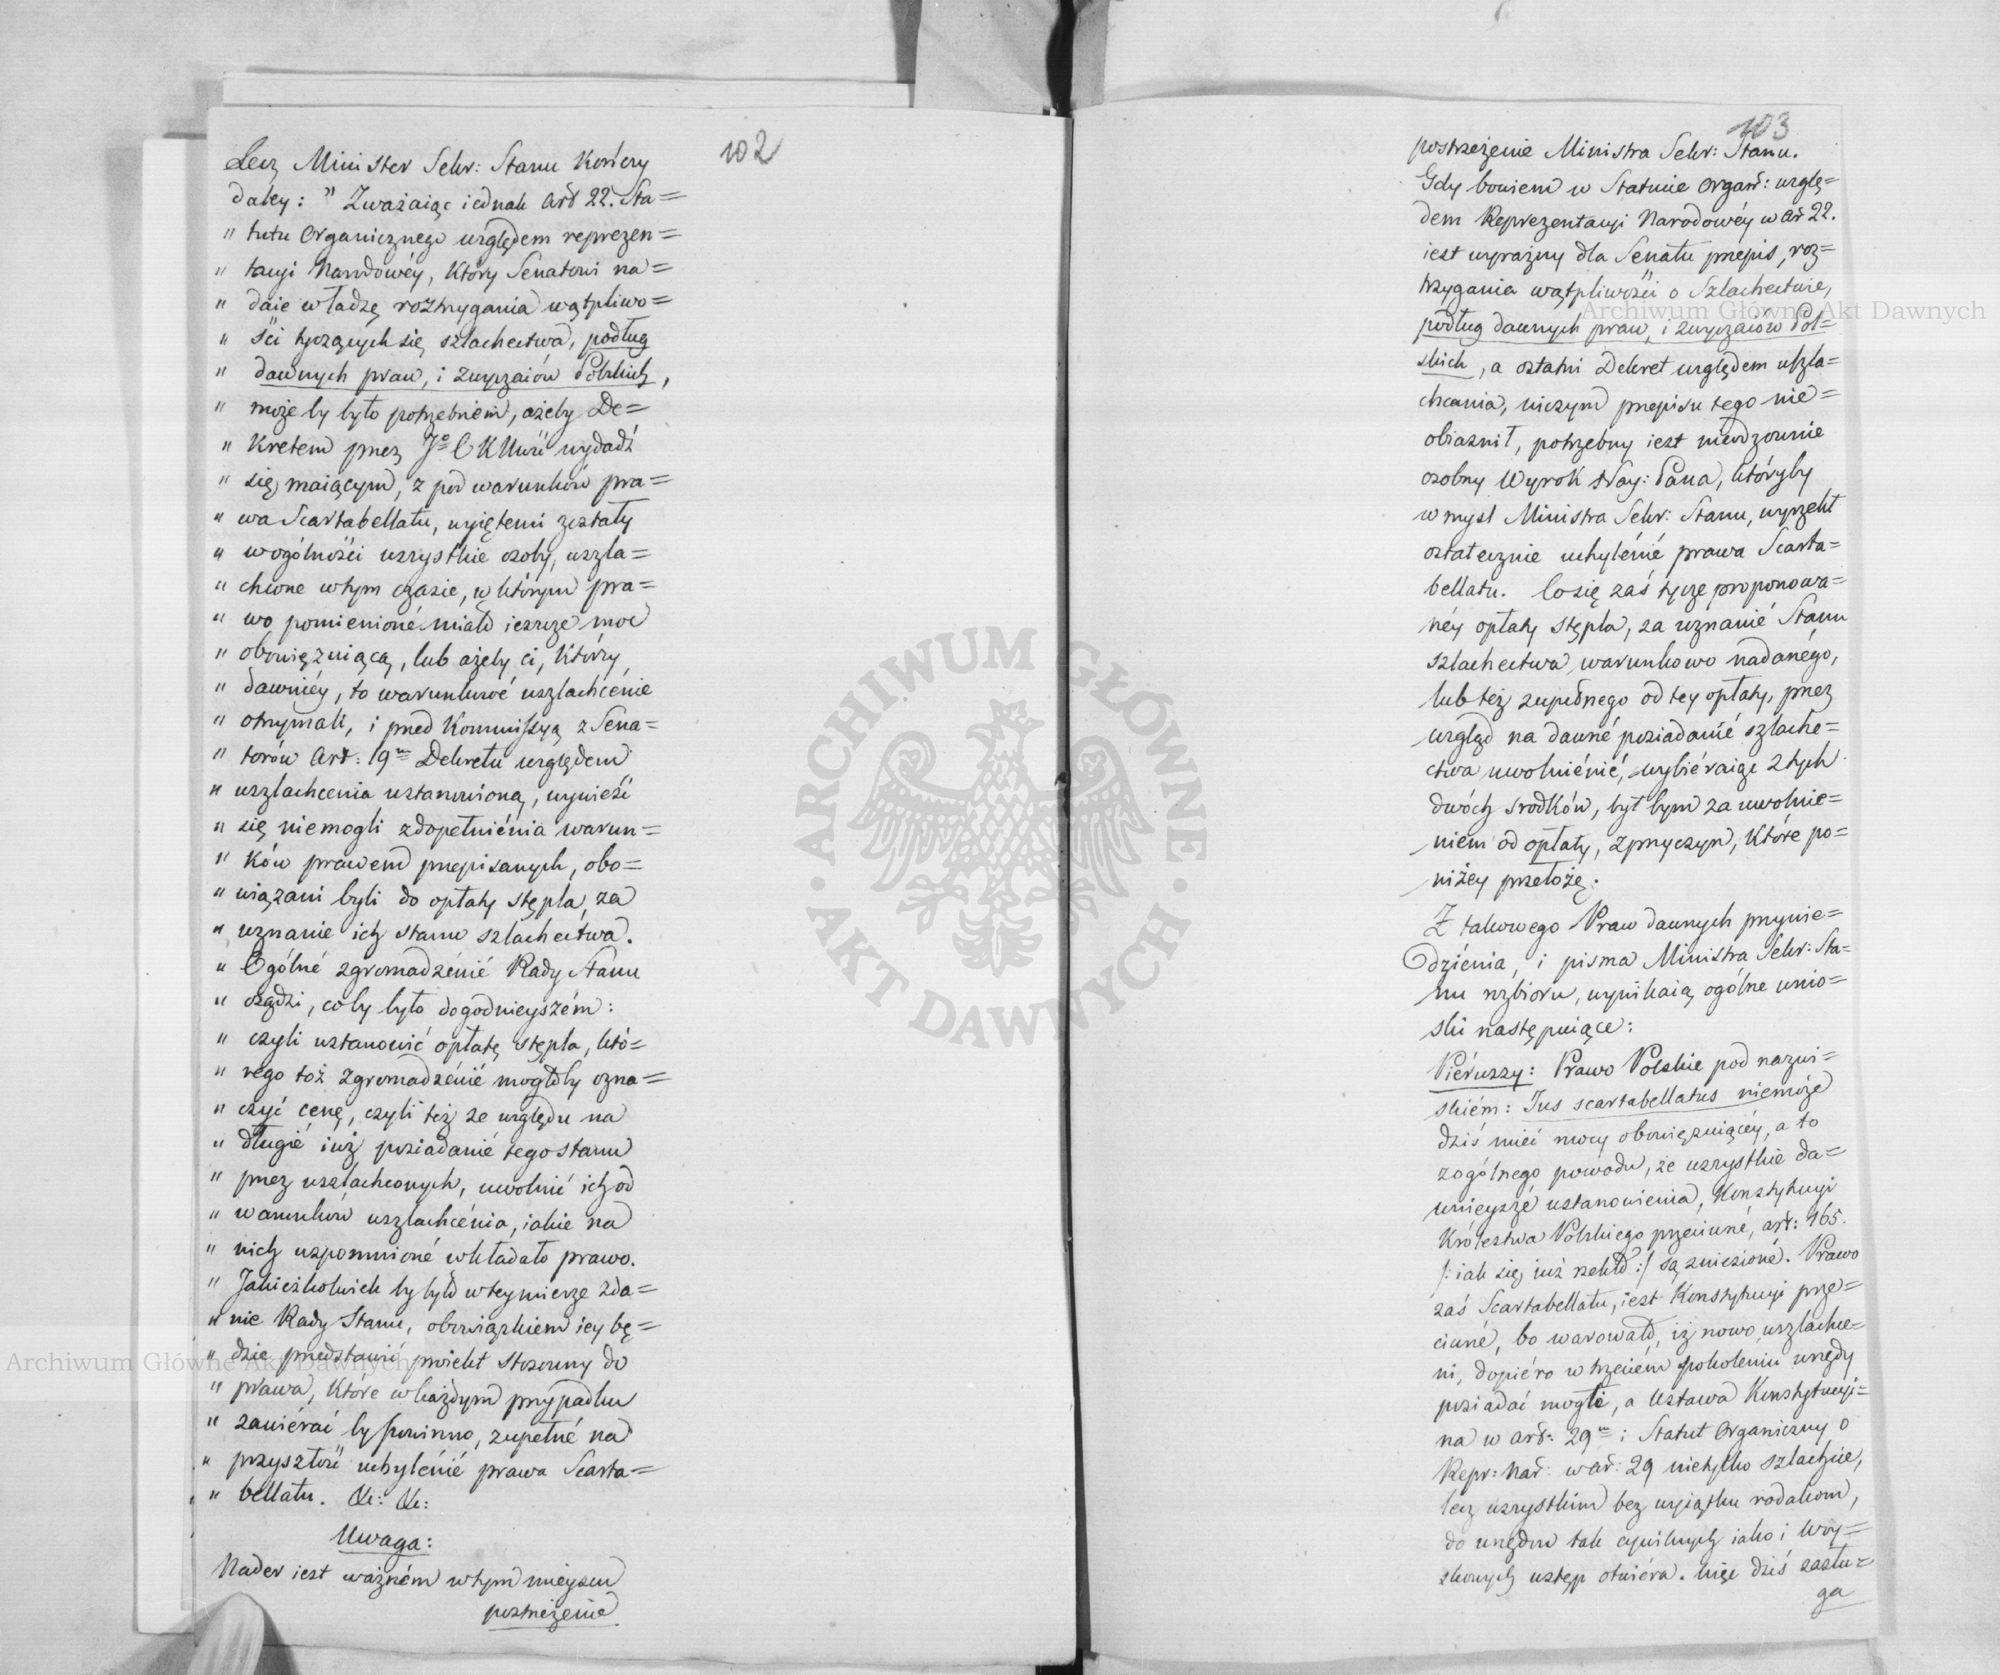 102
Lecz Minister Sekr: Stanu kończy
daley: " Zważaiąc iednak art 22. Sta=
" tutu Organicznego względem reprezen=
" tacyi Narodowéy, który Senatowi na=
" daie władzę roztrzygania wątpliwo=
" ści tyczących się szlachectwa, podług
" dawnych praw, i zwyczaiów Polskich,
" może by było potrzebnem, ażeby De=
" kretem przez Jo CKMość wydadź
" się maiącym, z pod warunków pra=
" wa Scartabellatu, wyiętemi zostały
" wogólności wszystkie osoby, uszla=
" chcone wtym czasie, w którym pra=
" wo pomienioné miało ieszcze moc
" obowięzuiącą, lub ażeby ci, którzy
" dawniéy, to warunkowé uszlachcénie
" otrzymali, i przed Kommissyą z Sena=
" torów art: 19m Dekretu względem
" uszlachcenia ustanowioną, wywieść
" się niemogli zdopełniénia warun=
" ków prawem przepisanych, obo=
" wiązani byli do opłaty stępla, za
" uznanie ich stanu szlachectwa.
" Ogólné zgromadzénié Rady Stanu
" osądzi, coby było dogodnieyszém:
" czyli ustanowić opłatę stępla, któ=
" rego toż Zgromadzénié mogłoby ozna=
" czyć cenę, czyli też ze względu na
" długié iuż posiadanié tego stanu
" przez uszlachconych, uwolnić ich od
" warunków uszlachcénia, iakie na
" nich wspomnioné wkładało prawo.
" Jakieżkolwiek by było wteymierze zda=
" nie Rady Stanu, obowiązkiem iey bę=
" dzie przedstawić proiekt stosowny do
" prawa, które w każdym przypadku
" zawiérać by powinno, zupełné na
" przyszłość uchylénié prawa Scarta=
" bellatu. &c: &c:
Uwaga:
Nader iest ważném wtym mieyscu
postrzeżenie
103
postrzeżenie Ministra Sekr: Stanu.
Gdy bowiem w Statucie Organ: wzglę=
dem Reprezentacyi Narodowéy w art 22.
iest wyraźny dla Senatu przepis, roz=
trzygania wątpliwości o Szlachectwie,
podług dawnych praw, i zwyczaiów Pol=
skich, a ostatni Dekret względem uszla=
chcania, niczym przepisu tego nie=
obiaśnił, potrzebny iest nieodzownie
osobny Wyrok Nay: Pana, któryby
w myśl Ministra Sekr: Stanu, wyrzekł
ostatecznie uchylénié prawa Scarta=
bellatu. Co się zaś tycze proponowa=
néy opłaty stępla, za uznanié Stanu
szlachectwa warunkowo nadanégo,
lub też zupełnego od tey opłaty, przez
wzgląd na dawné posiadanié szlache=
ctwa uwolniénié, wybiéraiąc z tych
dwóch srodków, był bym za uwolnie=
niem od opłaty, z przyczyn, które po=
niżey przełożę.
Z takowego Praw dawnych przywie=
dzienia, i pisma Ministra Sekr: Sta=
nu rozbioru, wynikaią ogólne wnio=
ski następuiące:
Piérwszy: Prawo Polskie pod nazwi=
skiém: Jus scartabellatus niemoże
dziś mieć mocy obowięzuiącéy, a to
z ogólnego powodu, że wszystkie da=
wnieyszé ustanowienia, Konstytucyi
Królestwa Polskiego przeciwné, art: 165.
/: iak się iuż rzekło :/ są zniesioné. Prawo
zaś Scartabellatu, iest Konstytucyi prze=
ciwné, bo warowało, iż nowo uszlache=
ni, dopiéro w trzeciém pokoleniu urzędy
posiadać mogli, a Ustawa Konstytucyi=
na w art: 29m i Statut Organiczny o
Repr: Nar: w ar: 29 nietylko szlachcie,
lecz wszystkim bez wyiątku rodakom,
do urzędów tak cywilnych iako i woy=
skowych wstęp otwiéra. Więc dziś zasłu=
ga
Archiwum Główne Akt Dawnych
Archiwum Główne Akt Dawnych
ARCHIWUM GŁÓWNE
AKT DAWNYCH